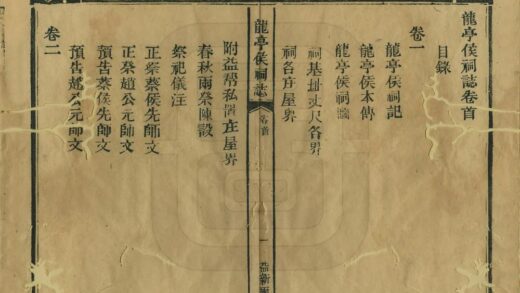 龍亭侯祠誌卷首
目錄
卷一
龍亭侯祠記
龍亭侯本傳
龍亭侯祠
祠基址丈尺各界
祠各庄屋界
龍亭侯祠誌
卷首
一
附益帮私置庄屋界
春秋兩祭陳設
祭祀儀注
正祭蔡侯先師文
正祭趙公元帥文
預告蔡侯先師文
預告趙公元帥文
卷二